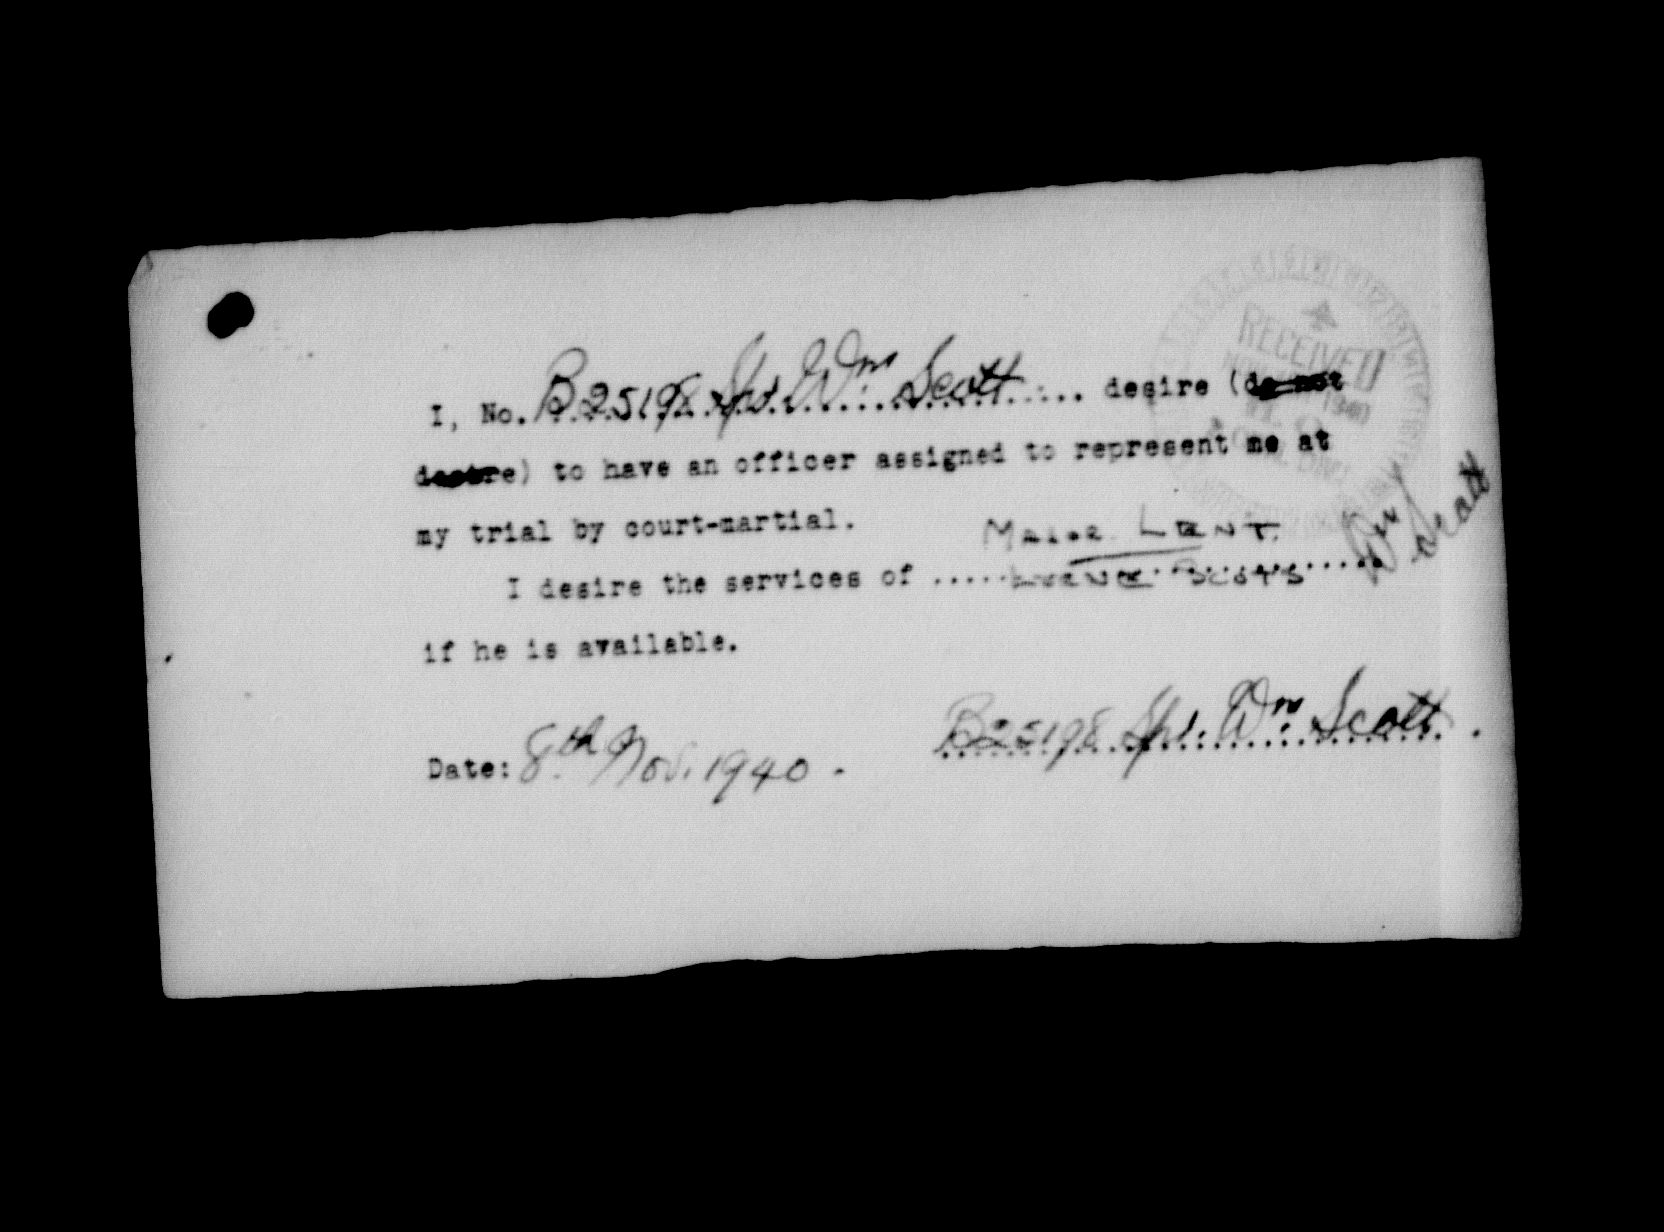 RECEIVED
1940
I, No. B25198 Spr. Wm. Scott desire (do not
desire) to have an officer assigned to represent me at
my trial by court-martial.
Major Lent
I desire the services of .....
Wm Scott
if he is available.
B25198 Spr. Wm. Scott.
Date: 8th Nov. 1940.